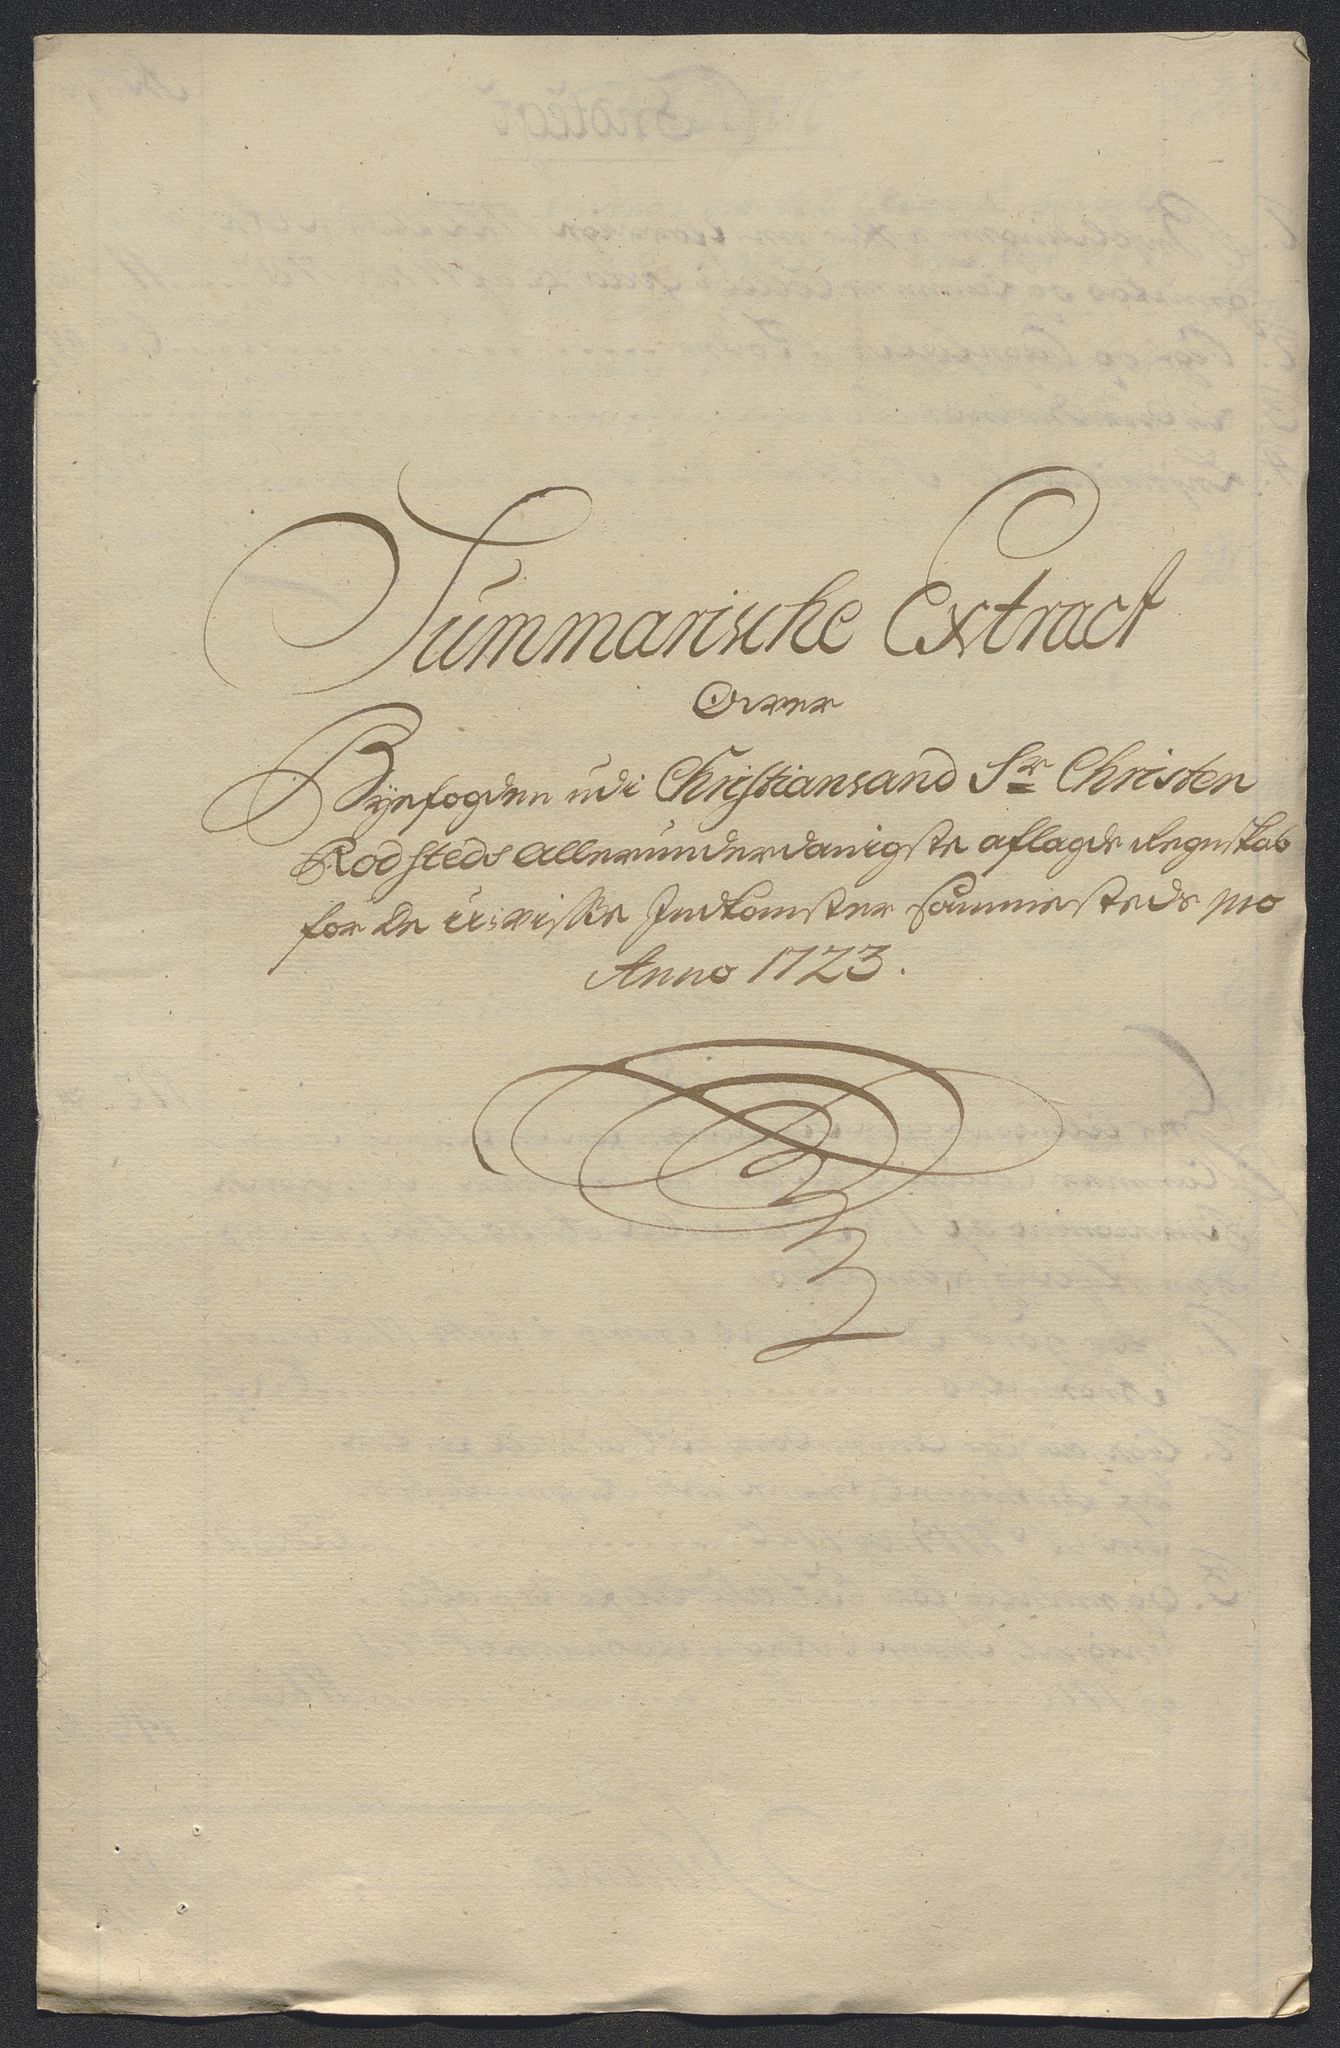 Summarische Extract
Over
Byefogden udi Christiansand Sr Christen
Rodsteds Allerunderdanigste aflagde Regnskab
for de uvisse Indkomster sammesteds pro
Anno 1723.